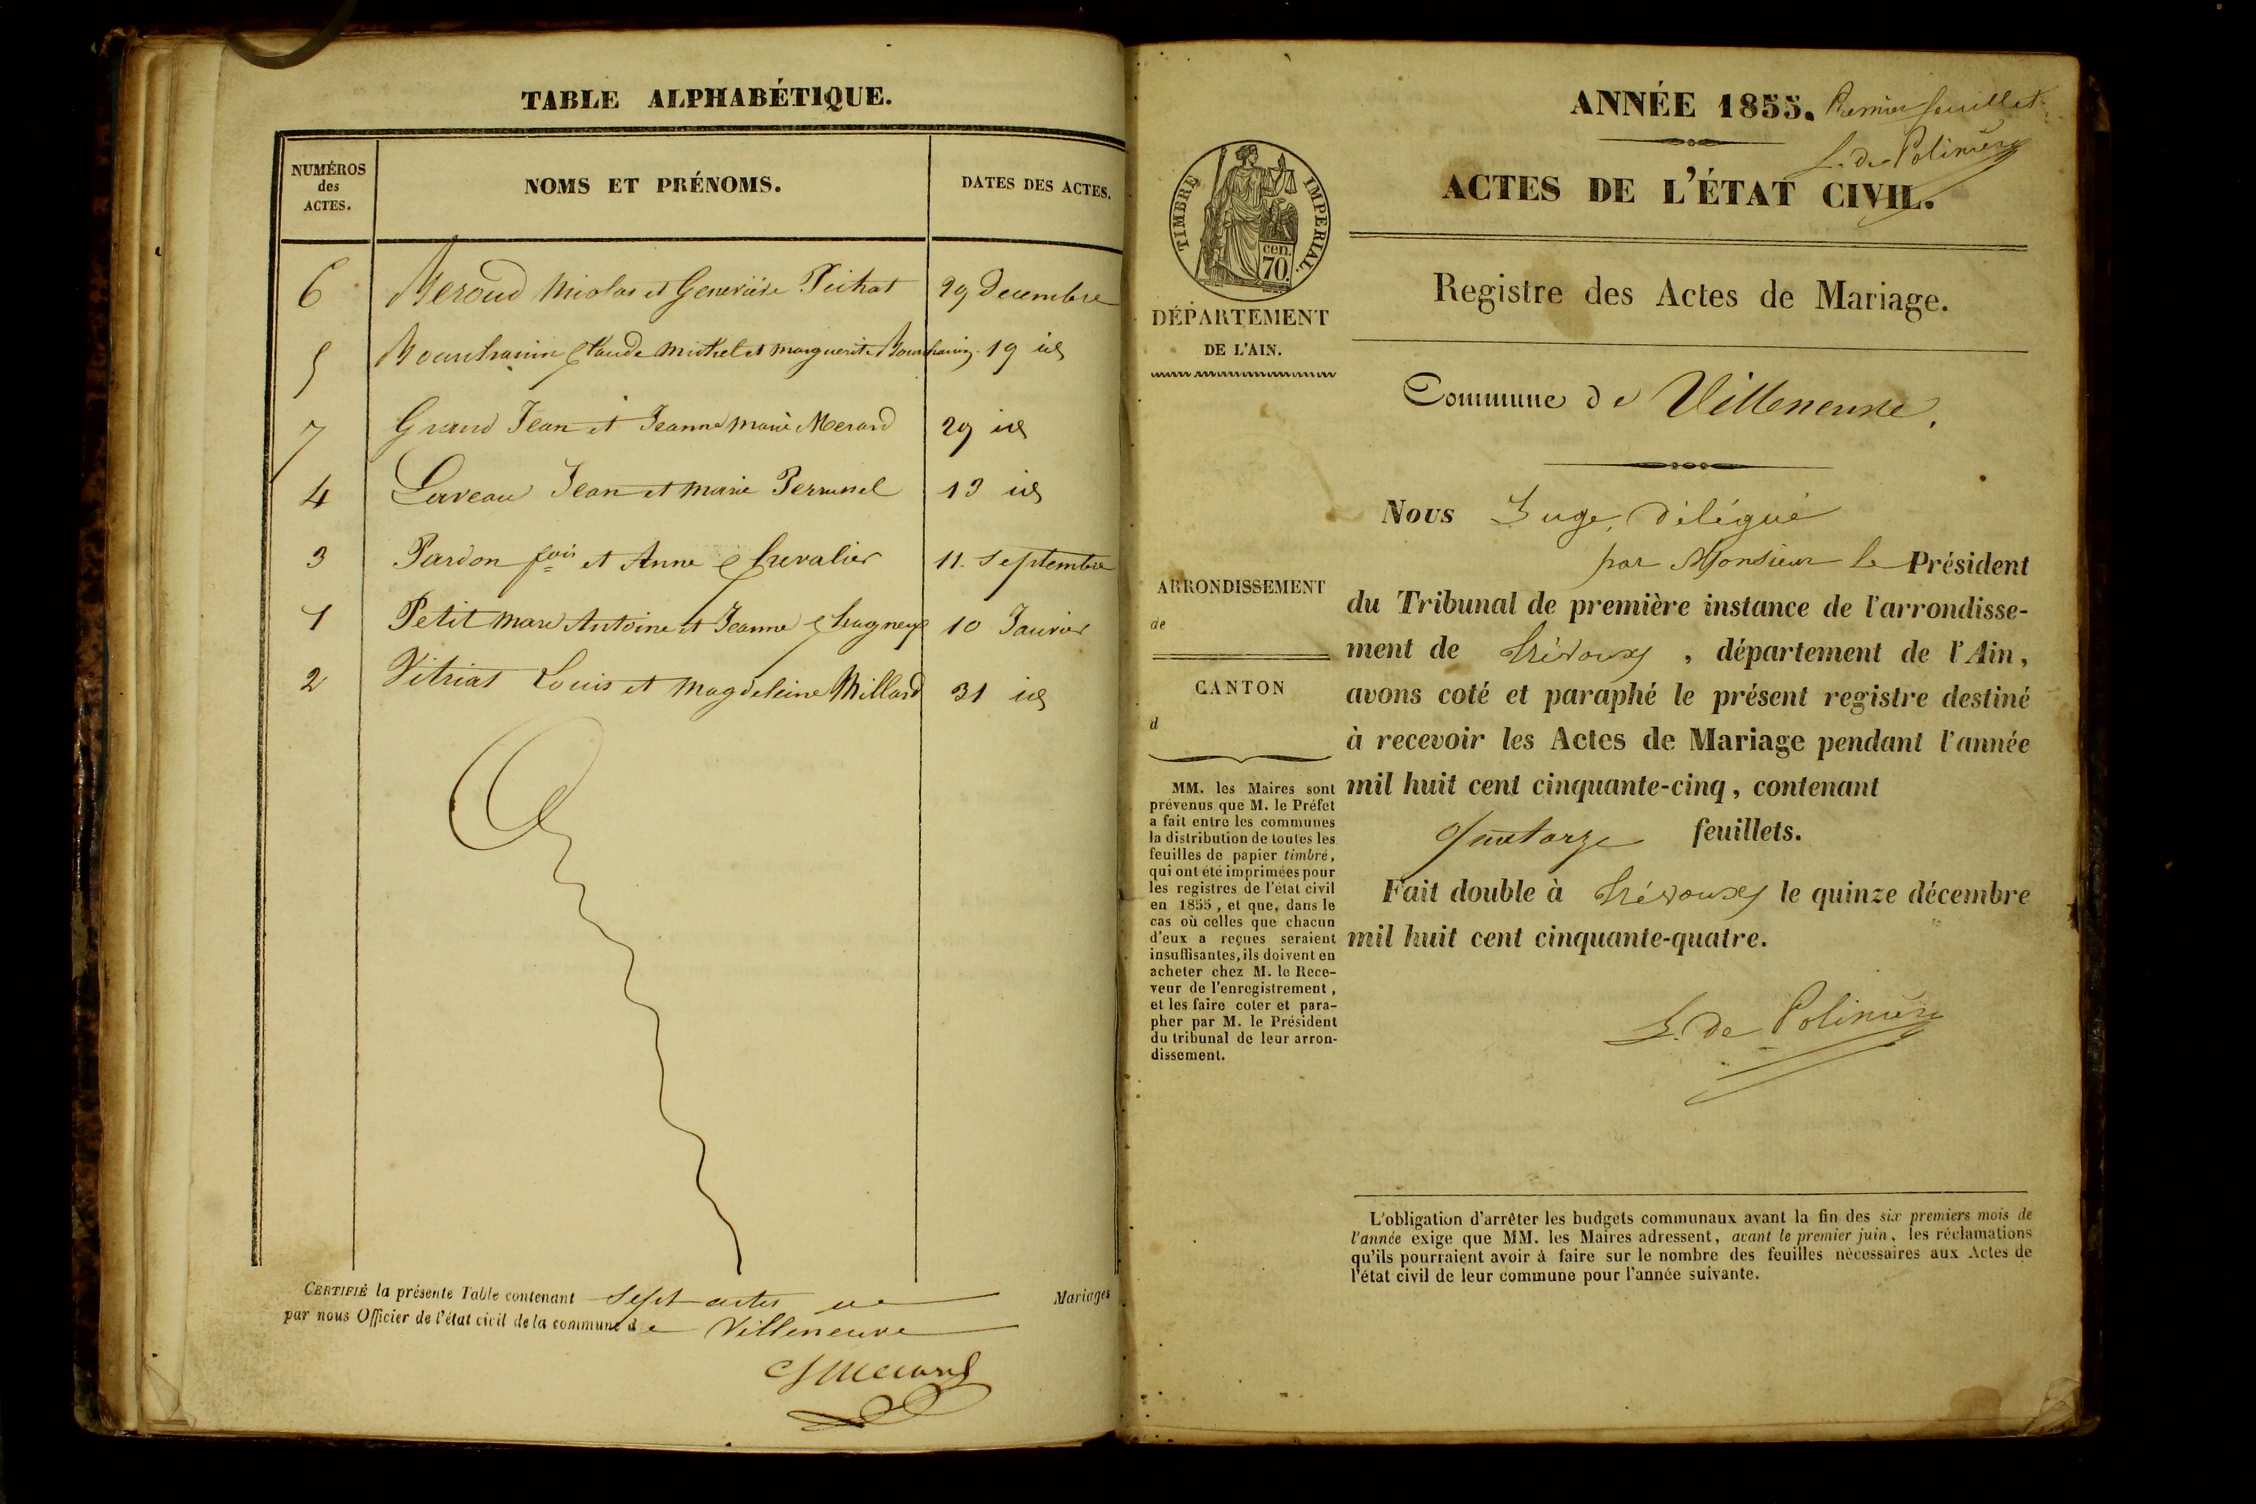 TABLE ALPHABÉTIQUE.
NUMÉROS
des
ACTES.
NOMS ET PRÉNOMS.
DATES DES ACTES.
6 Beroud Nicolas et Geneviève Pichat 29 Decembre
5 Claude Michel et Marguerite 19 id
7 Grand Jean et Jeanne Marie Merard 29 id
4 Laveau Jean et Marie 13 id
3 Pardon fois et Anne Chevalier 11 Septembre
1 Petit Marc Antoine et Jeanne 10 Janvier
2 Vitriat Louis et Magdeleine Millard 31 id
CERTIFIÉ la présente Table contenant Sept actes de Mariages
par nous Officier de l'état civil de la commune de Villeneuve
ANNÉE 1855. Premier feuillet
L. de Polinière
ACTES DE L'ÉTAT CIVIL.
TIMBRE IMPERIAL.
cen.
70.
DÉPARTEMENT
DE L'AIN.
Registre des Actes de Mariage.
Commune de Villeneuve.
ARRONDISSEMENT
de
CANTON
d
MM. les Maires sont
prévenus que M. le Préfet
a fait entre les communes
la distribution de toutes les
feuilles de papier timbré,
qui ont été imprimées pour
les registres de l'état civil
en 1855, et que, dans le
cas où celles que chacun
d'eux a reçues seraient
insuffisantes, ils doivent en
acheter chez M. le Rece-
veur de l'enregistrement,
et les faire coter et para-
pher par M. le Président
du tribunal de leur arron-
dissement.
Nous Juge, délégué
par Monsieur le Président
du Tribunal de première instance de l'arrondisse-
ment de Trévoux, département de l'Ain,
avons coté et paraphé le présent registre destiné
à recevoir les Actes de Mariage pendant l'année
mil huit cent cinquante-cinq, contenant
quatorze feuillets.
Fait double à Trévoux le quinze décembre
mil huit cent cinquante-quatre.
L. de Polinière
L'obligation d'arrêter les budgets communaux avant la fin des six premiers mois de
l'année exige que MM. les Maires adressent, avant le premier juin, les réclamations
qu'ils pourraient avoir à faire sur le nombre des feuilles nécessaires aux Actes de
l'état civil de leur commune pour l'année suivante.